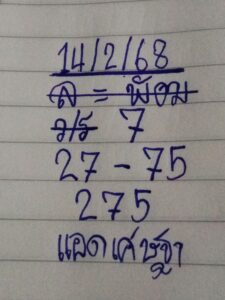 14/2/68
ล = พ้อม
ว/ร 7
27 - 75
275
แอดเศษฐา